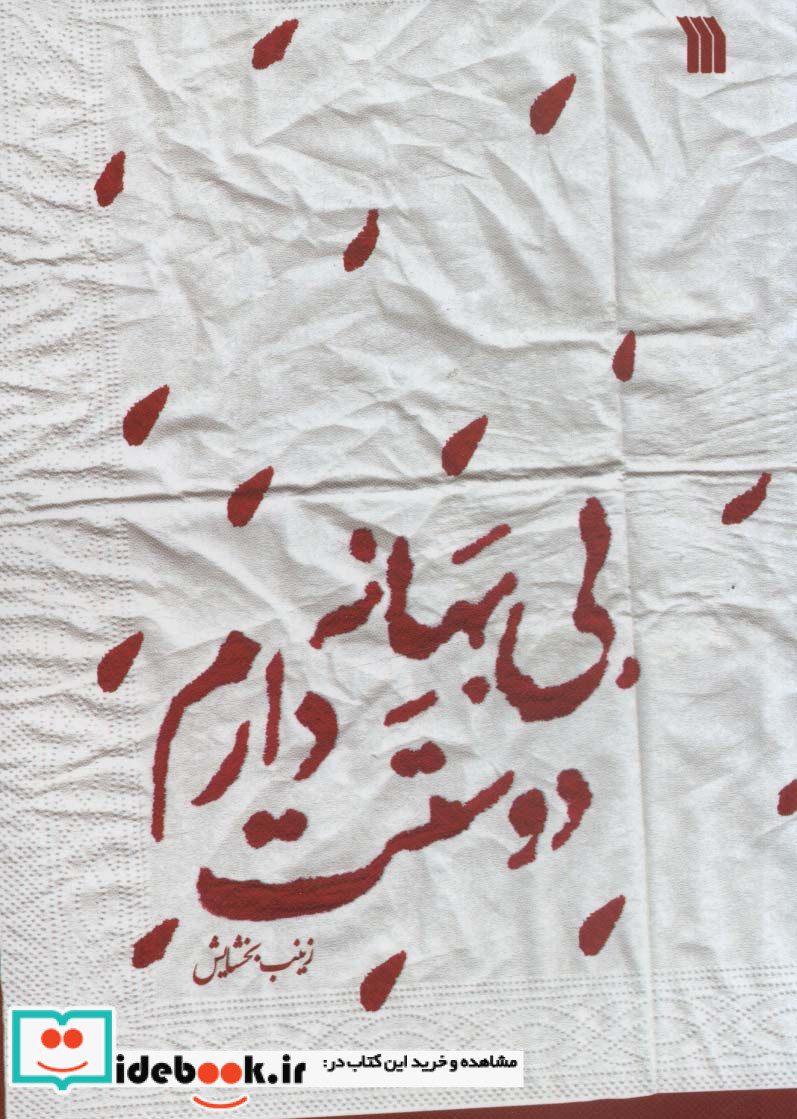 بی بَهانه
دوستَت دارم
زینب بخشایش
مشاهده و خرید این کتاب در:
idebook.ir